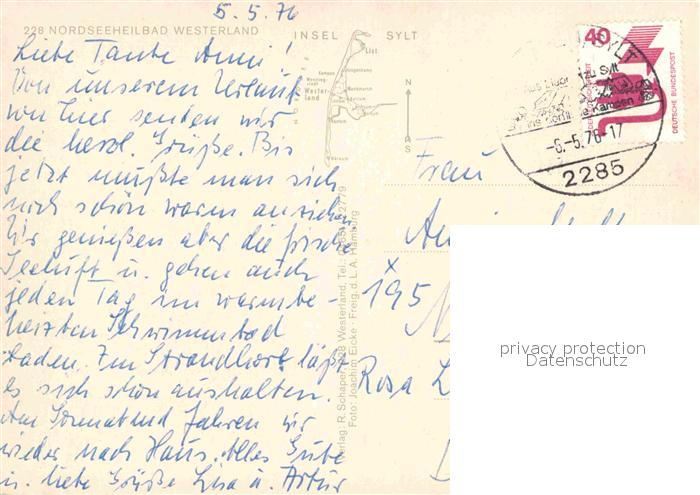 5.5.76
228 NORDSEEHEILBAD WESTERLAND
INSEL SYLT
Liebe Tante Anni!
Von unserem Urlaub
von hier senden wir
die herzl. Grüße. Bis
jetzt mußte man sich
noch schön warm anziehen
Wir genießen aber die frische
Seeluft u. gehen auch
jeden Tag im warmbe-
heizten Schwimmbad
baden. Im Strandkorb läßt
es sich schön aushalten.
Am Sonnabend fahren wir
wieder nach Haus. Alles Gute
u. liebe Grüße Lisa u. Artur
List
Kampen
Wester-
land
N
S
Verlag: R. Schaper, 228 Westerland, Tel.:
Foto: Joachim Eicke · Freig. d. L. A. Hamburg
40
DEUTSCHE BUNDESPOST
SYLT
-6.-5.76-17
2285
Frau
X
195
Rosa
privacy protection
Datenschutz